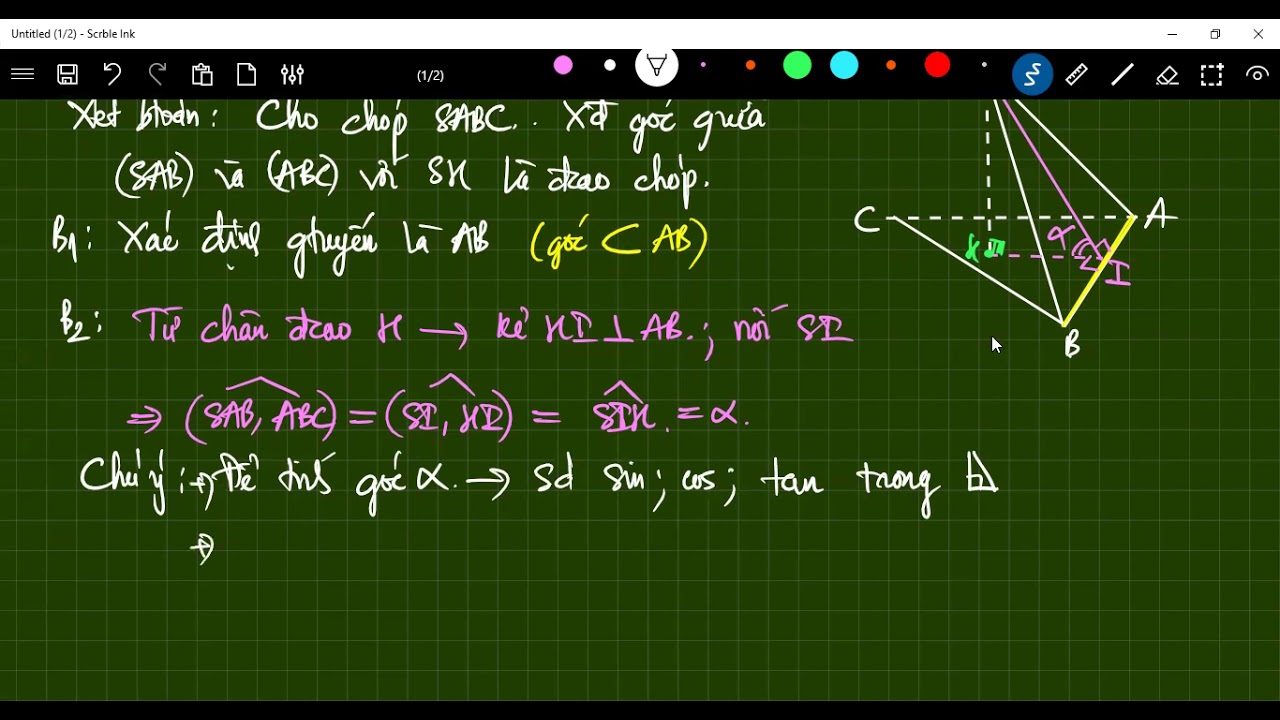 Untitled (1/2) - Scrble Ink
(1/2)
Xét btoán: Cho chóp SABC. Xđ góc giữa
(SAB) và (ABC) với SH là đcao chóp.
B1: Xác định gtuyến là AB (gốc ⊂ AB)
B2: Từ chân đcao H → kẻ HI ⊥ AB.; nối SI
⇒ (SAB, ABC) = (SI, HI) = SIH = α.
Chú ý: → Để tính góc α. → sd sin; cos; tan trong
→
C
A
H
α
I
B